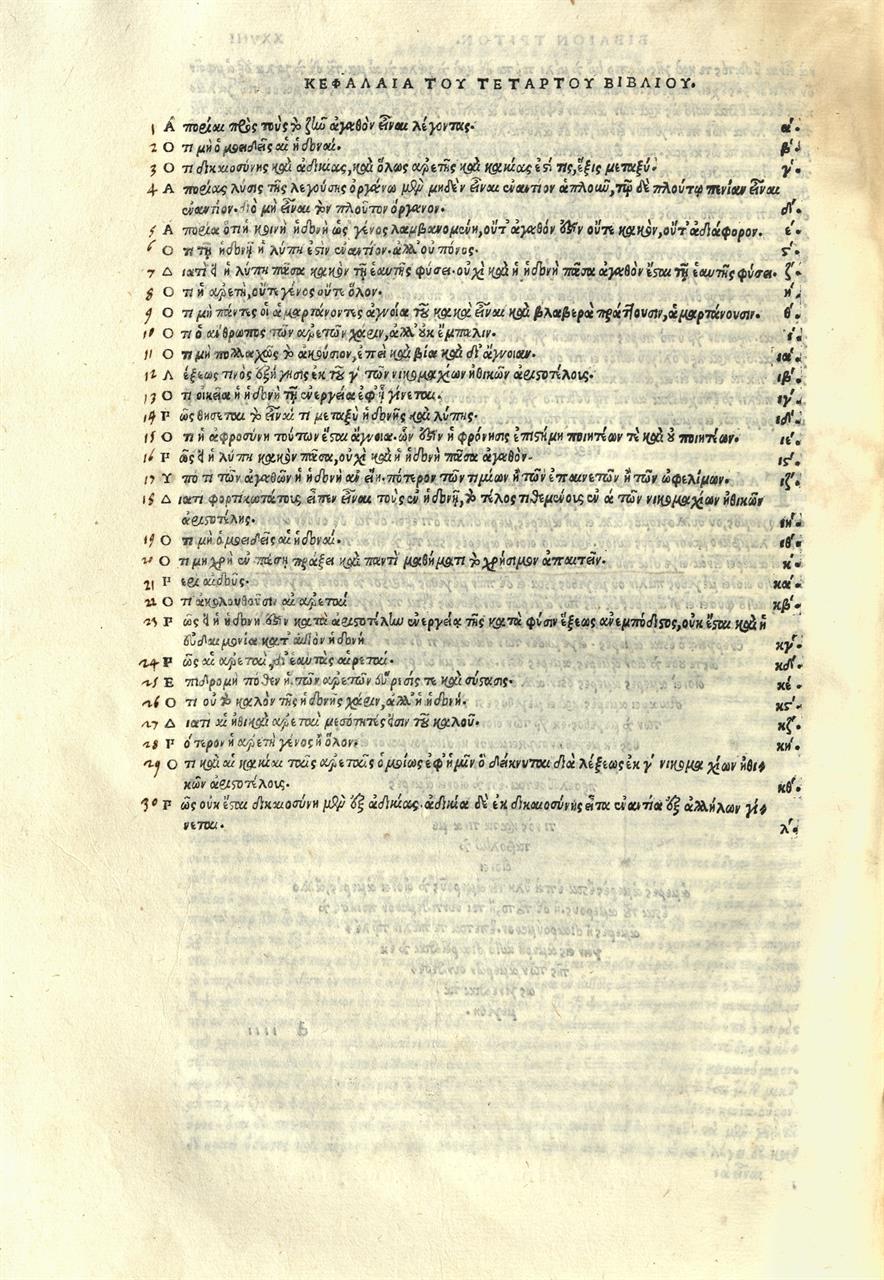 ΚΕΦΑΛΑΙΑ ΤΟΥ ΤΕΤΑΡΤΟΥ ΒΙΒΛΙΟΥ.
1 Ἀ πορίαι πρὸς τοὺς τὸ ζῆν ἀγαθὸν εἶναι λέγοντας. α΄.
2 Ο τι μὴ ὁμοειδεῖς αἱ ἡδοναί. β΄.
3 Ο τι δικαιοσύνης καὶ ἀδικίας, καὶ ὅλως ἀρετῆς καὶ κακίας ἐστί τις, ἕξις μεταξύ. γ΄.
4 Α πορίας λύσις τῆς λεγούσης ὀργάνῳ μὲν μηδὲν εἶναι ἐναντίον ἁπλοῦν, τῷ δὲ πλούτῳ πενίαν εἶναι
ἐναντίον. διὸ μὴ εἶναι τὸν πλοῦτον ὄργανον. δ΄.
5 Α πορία ὅτι ἡ κοινὴ ἡδονὴ ὡς γένος λαμβανομένη, οὔτ' ἀγαθὸν ἐστὶν οὔτε κακὸν, οὔτ' ἀδιάφορον. ε΄.
6 Ο τι τῇ ἡδονῇ ἡ λύπη ἐστὶν ἐναντίον. ἀλλ' οὐ πόνος. ϛ΄.
7 Δ ιατί εἰ ἡ λύπη πᾶσα κακὸν τῇ ἑαυτῆς φύσει. οὐχὶ καὶ ἡ ἡδονὴ πᾶσα ἀγαθὸν ἔσται τῇ ἑαυτῆς φύσει. ζ΄.
8 Ο τι ἡ ἀρετὴ, οὔτε γένος οὔτε ὅλον. η΄.
9 Ο τι μὴ πάντες οἱ ἁμαρτάνοντες ἀγνοίᾳ τοῦ κακὰ εἶναι καὶ βλαβερὰ πράττουσιν, ἁμαρτάνουσιν. θ΄.
10 Ο τι ὁ ἄνθρωπος τῶν ἀρετῶν χάριν, ἀλλ' οὐκ ἔμπαλιν. ι΄.
11 Ο τι μὴ πολλαχῶς τὸ ἀκούσιον, ἐπεὶ καὶ βίᾳ καὶ δι' ἄγνοιαν. ια΄.
12 Λ έξεώς τινος ἐξήγησις ἐκ τοῦ γ΄ τῶν νικομαχίων ἠθικῶν ἀριστοτέλους. ιβ΄.
13 Ο τι οἰκεία ἡ ἡδονὴ τῇ ἐνεργείᾳ ἐφ' ᾗ γίνεται. ιγ΄.
14 Ρ ῶς θήσεται τὸ εἶναί τι μεταξὺ ἡδονῆς καὶ λύπης. ιδ΄.
15 Ο τι ἡ ἀφροσύνη τούτων ἔσται ἄγνοια. ὧν ἐστὶν ἡ φρόνησις ἐπιστήμη ποιητέων τὲ καὶ οὐ ποιητέων. ιε΄.
16 Ρ ῶς εἰ ἡ λύπη κακὸν πᾶσα, οὐχὶ καὶ ἡ ἡδονὴ πᾶσα ἀγαθὸν. ιϛ΄.
17 Υ πὸ τί τῶν ἀγαθῶν ἡ ἡδονὴ ἂν εἴη. πότερον τῶν τιμίων ἢ τῶν ἐπαινετῶν ἢ τῶν ὠφελίμων. ιζ΄.
18 Δ ιατί φορτικωτάτους εἶπεν εἶναι τοὺς ἐν ἡδονῇ, τὸ τέλος τιθεμένους ἐν α τῶν νικομαχίων ἠθικῶν
ἀριστοτέλης. ιη΄.
19 Ο τι μὴ ὁμοειδεῖς αἱ ἡδοναί. ιθ΄.
20 Ο τι μὴ χρὴ ἐν πάσῃ πράξει καὶ παντὶ μαθήματι τὸ χρήσιμον ἀπαιτεῖν. κ΄.
21 Ρ ερὶ αἰδοῦς. κα΄.
22 Ο τι ἀκολουθοῦσιν αἱ ἀρεταί κβ΄.
23 Ρ ῶς εἰ ἡ ἡδονὴ ἐστὶν κατὰ ἀριστοτέλην ἐνεργεία τῆς κατὰ φύσιν ἕξεως ἀνεμπόδιστος, οὐκ ἔσται καὶ ἡ
εὐδαιμονία κατ' αὐτὸν ἡδονὴ κγ΄.
24 Ρ ῶς αἱ ἀρεταὶ, δι' ἑαυτὰς αἱρεταί. κδ΄.
25 Ε πιδρομὴ πόθεν ἡ τῶν ἀρετῶν εὕρεσίς τε καὶ σύστασις. κέ.
26 Ο τι οὐ τὸ καλὸν τῆς ἡδονῆς χάριν, ἀλλ' ἡ ἡδονή. κϛ΄.
27 Δ ιατί αἱ ἠθικαὶ ἀρεταὶ μεσότητές εἰσιν τοῦ καλοῦ. κζ΄.
28 Ρ ότερον ἡ ἀρετὴ γένος ἢ ὅλον. κή.
29 Ο τι καὶ αἱ κακίαι ταῖς ἀρεταῖς ὁμοίως ἐφ' ἡμῖν ὃ δείκνυται διὰ λέξεως ἐκ γ΄ νικομαχίων ἠθι-
κῶν ἀριστοτέλους. κθ΄.
30 Ρ ῶς οὐκ ἔσται δικαιοσύνη μὲν ἐξ ἀδικίας. ἀδικία δὲ ἐκ δικαιοσύνης εἶτα ἐναντία ἐξ ἀλλήλων γί-
νεται. λ΄.